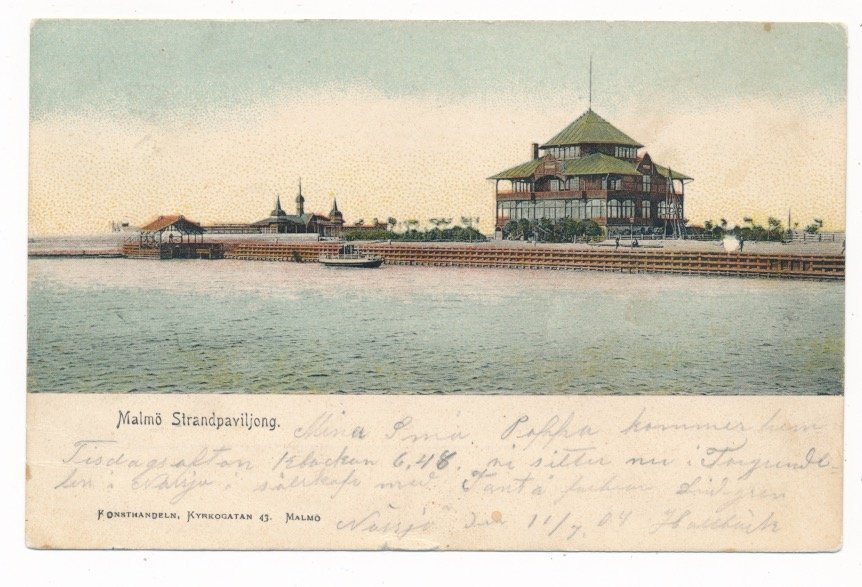 Malmö Strandpaviljong.
Mina Små. Poppa kommer hem
Tisdagsafton klockan 6,48. vi sitter nu i
i sällskap med Tant å
Konsthandeln, Kyrkogatan 43. Malmö
Nässjö den 11/7 04 Hallbäck